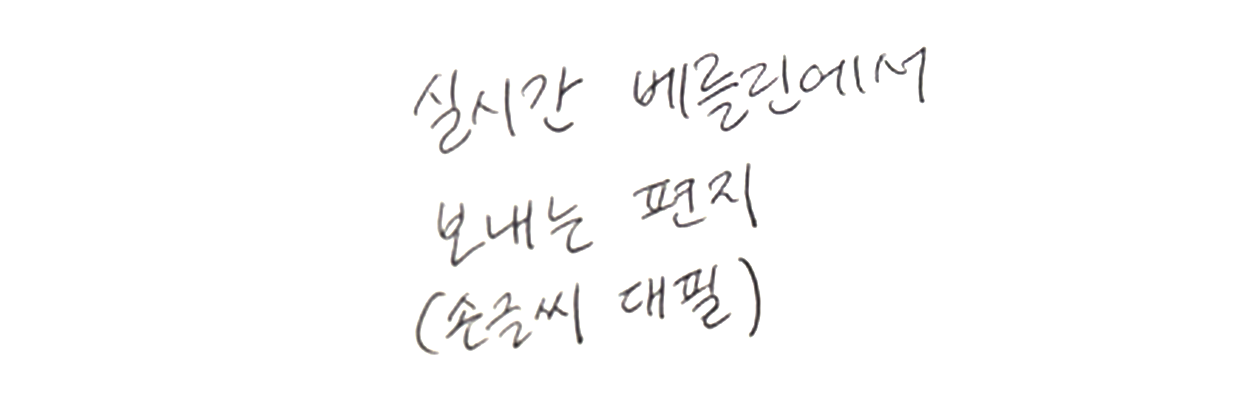 실시간 베를린에서
보내는 편지
(손글씨 대필)